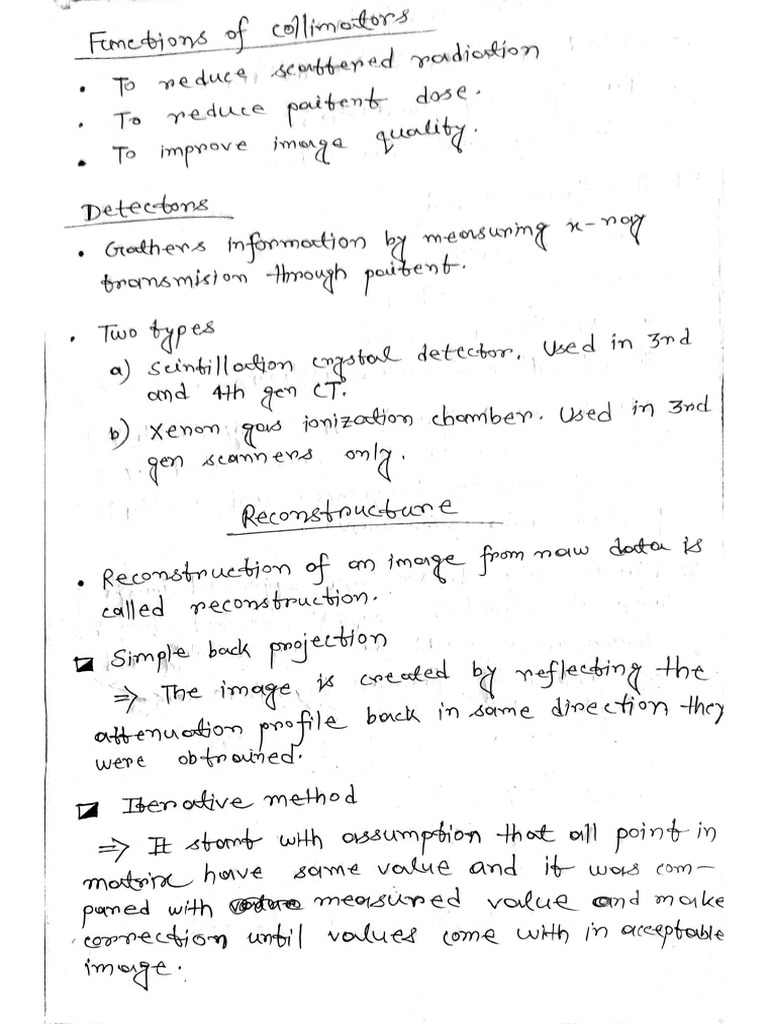 Functions of collimators
• To reduce scattered radiation
• To reduce paitent dose.
• To improve image quality.
Detectors
• Gathers information by measuring x-ray
transmision through paitent.
• Two types
a) Scintillation crystal detector. Used in 3nd
and 4th gen CT.
b) Xenon gas ionization chamber. Used in 3nd
gen scanners only.
Reconstructure
• Reconstruction of an image from raw data is
called reconstruction.
Simple back projection
⇒ The image is created by reflecting the
attenuation profile back in same direction they
were obtrained.
Iterative method
⇒ It start with assumption that all point in
matrix have same value and it was com-
pared with measured value and make
correction until values come with in acceptable
image.